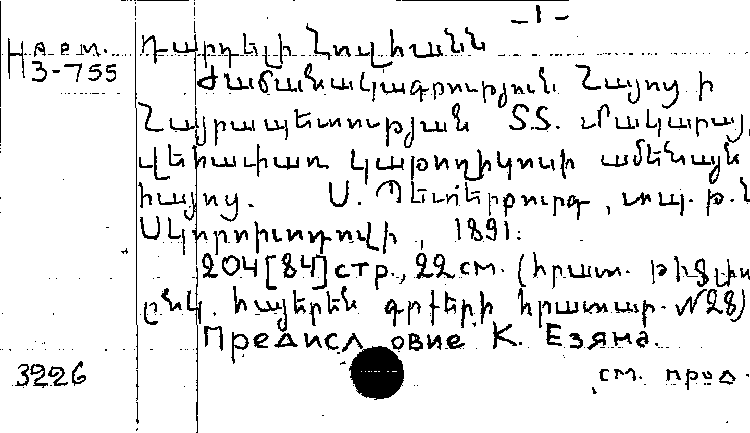 -1-
Нарм.
3-755
Դարդելի Հովհանն
Ժամանակագրություն Հայոց ի
Հայրապետության S.S. Մակարայ
վեհափառ կաթողիկոսի ամենայն
հայոց. Ս. Պետերբուրգ, տպ. թ. Ն
Սկորոխոդովի, 1891:
204 [84] стр., 22 см. (հրատ. թիֆլիս
ընկ. հայերեն գրքերի հրատար. №28)
Предисловие К. Езяна.
3226 см. прод.